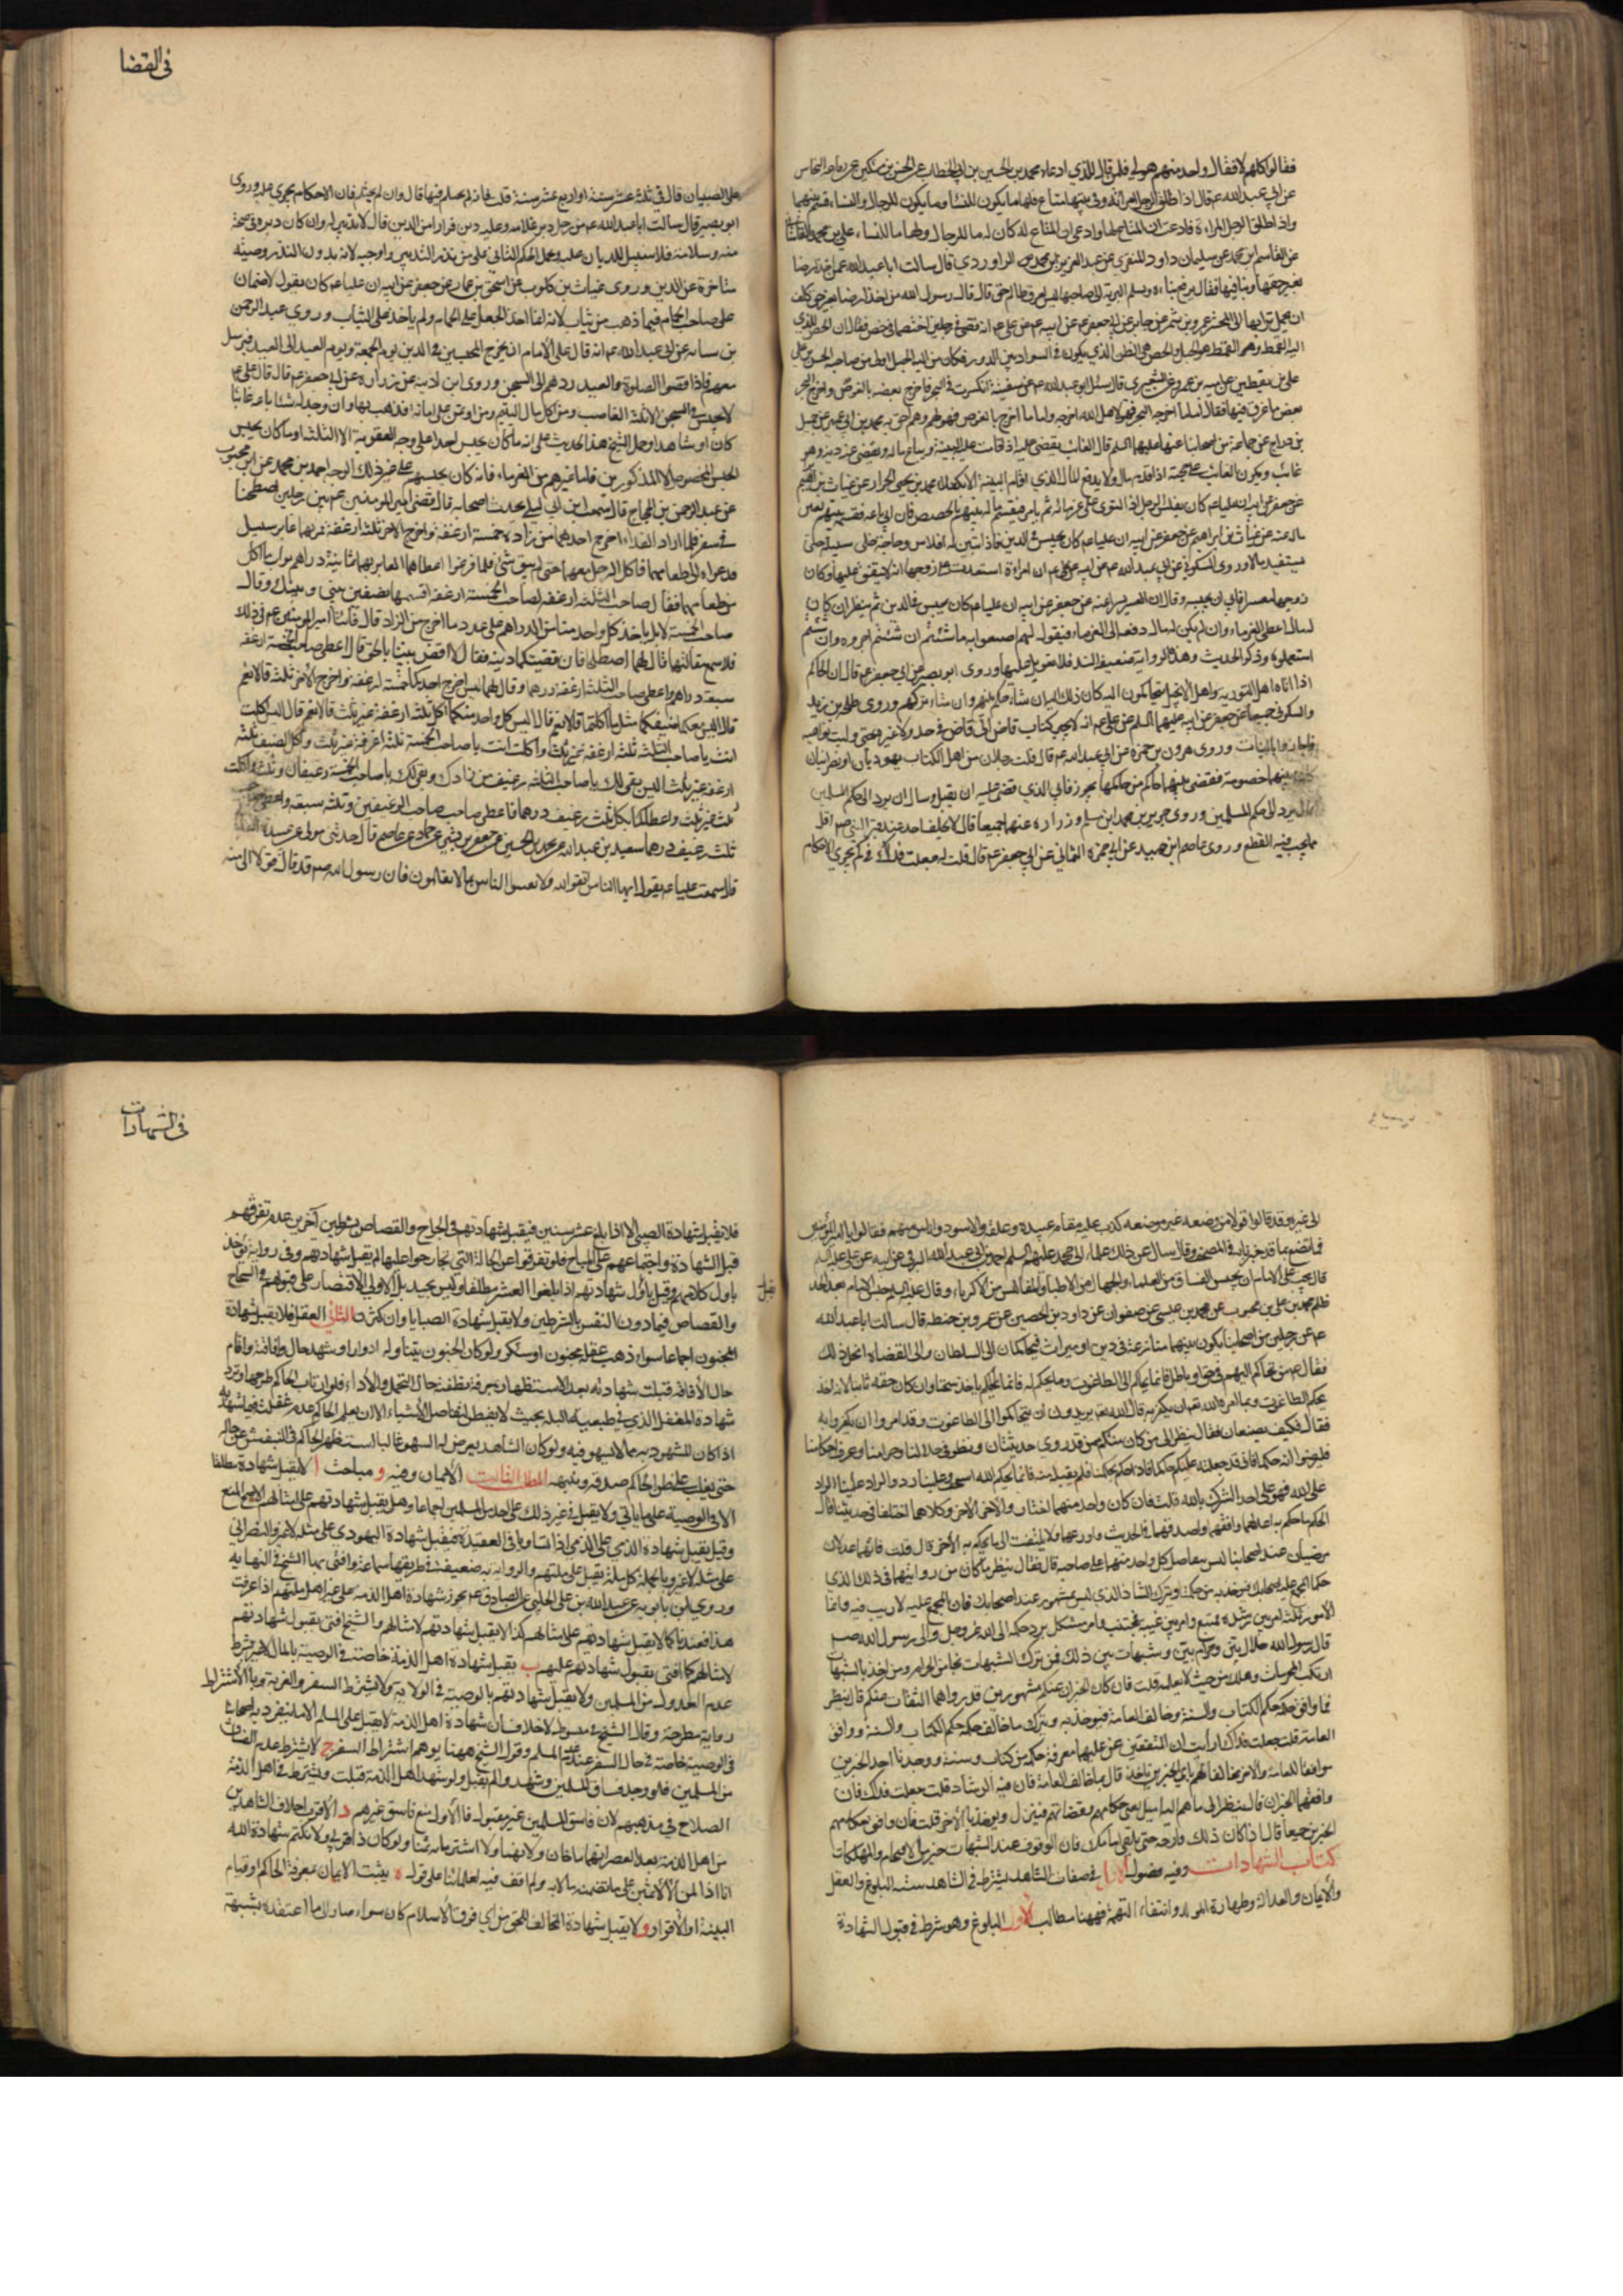 فى القضا
فقالوا كلهم لا فقال واحد منهم هو لي فلس قال للذي ادعاه محمد بن الحسين بن ابي الخطاب عن الحسن بن مسكين عن رفاعة النخاس
عن ابي عبد الله عم قال اذا طلق الرجل امرأته وفي بيتها متاع فلها ما يكون للنساء وما يكون للرجال والنساء قسم بينهما
واذا طلق الرجل المراة فادعت ان المتاع لها وادعى ان المتاع له كان له ما للرجال ولها ما للنساء علي بن محمد القاساني
عن القاسم بن محمد عن سليمان داود المنقري عن عبد العزيز بن محمد الدراوردي قال سالت ابا عبد الله عمن اخذ ارضا
بغير حقها وبنا فيها فقال يرفع بناءه ويسلم التربة الى صاحبها ليس لعرق ظالم حق ثم قال قال رسول الله من اخذ ارضا بغير حق كلف
ان يحمل ترابها الى المحشر عمرو بن شمر عن جابر عن ابي جعفر عم عن ابيه عم عن علي عم انه قضى في رجلين اختصما في خص فقال ان الخص للذي
اليه القمط وهو القمط هو الحبل والخص هو الطن الذي يكون في السواد بين الدور فكان من اليه الحبل اولى من صاحبه الحسن بن علي
علي بن يقطين عن امية بن عمرو عن الشعيري قال سئل ابو عبد الله عم عن سفينة انكسرت في البحر فاخرج بعضه بالغوص واخرج البحر
بعض ما غرق فيها فقال اما ما اخرجه البحر فهو لاهله الله اخرجه واما ما اخرج بالغوص فهو لهم وهم احق به محمد بن ابي عمير عن جميل
بن دراج عن جماعة من اصحابنا عنهما عليهما السلم قال الغائب يقضى عليه اذا قامت عليه البينة ويباع ماله ويقضى عنه دينه وهو
غائب ويكون الغائب على حجته اذا قدم قال ولا يدفع المال الى الذي اقام البينة الا بكفلاء محمد بن يحيى الخزاز عن غياث بن ابراهيم
عن جعفر عن ابيه ان عليا عم كان يفلس الرجل اذا التوى على غرمائه ثم يامر فيقسم ماله بينهم بالحصص فان ابى باعه فقسم بينهم يعني
ماله عنه عن غياث بن ابراهيم عن جعفر عن ابيه ان عليا عم كان يحبس في الدين فاذا تبين له افلاس وحاجة خلى سبيله حتى
يستفيد مالا وروى السكوني عن ابي عبد الله عم عن ابيه عن علي عم ان امراة استعدت على زوجها انه لا ينفق عليها وكان
زوجها معسرا فابى ان يحبسه وقال ان مع العسر يسرا عنه عن جعفر عن ابيه ان عليا عم كان يحبس في الدين ثم ينظر ان كان
له مال اعطى الغرماء وان لم يكن له مال دفعه الى الغرماء فيقول لهم اصنعوا به ما شئتم ان شئتم اجروه وان شئتم
استعملوه وذكر الحديث وهذه الرواية ضعيفة السند فلا تعويل عليها وروى ابو بصير عن ابي جعفر عم قال ان الحاكم
اذا اتاه اهل التورية واهل الانجيل يتحاكمون اليه كان ذلك اليه ان شاء حكم بينهم وان شاء تركهم وروى طلحة بن زيد
والسكوني جميعا عن جعفر عن ابيه عليهما السلم عن علي عم انه لا يجيز كتاب قاض الى قاض في حد ولا غيره حتى وليت بنو امية
فاجازوا بالبينات وروى هرون بن حمزة عن ابي عبد الله عم قال قلت رجلان من اهل الكتاب يهوديان او نصرانيان
كان بينهما خصومة فقضى بينهما حاكم من حكامهما بجور فابى الذي قضى عليه ان يقبل وسال ان يرد الى حكم المسلمين
قال يرد الى حكم المسلمين وروى حريز بن محمد ابن مسلم وزراره عنهما جميعا قال لا يحلف احد عند قبر النبي صم اقل
مما يجب فيه القطع وروى عاصم ابن حميد عن ابي حمزة الثمالي عن ابي جعفر عم قال قلت له جعلت فداك في كم تجري الاحكام
على الصبيان قال في ثلث عشر سنة او اربع عشر سنة قلت فان لم يحتلم فيها قال وان لم يحتلم فان الاحكام يجري عليه وروى
ابو بصير قال سالت ابا عبد الله عم عن رجل دبر غلامه وعليه دين فرارا من الدين قال لا تدبير له وان كان دبره في صحة
منه وسلامة فلا سبيل للديان عليه
متاخرة عن الدين وروى غياث بن كلوب عن اسحق بن عمار عن جعفر عن ابيه ان عليا عم كان يقول لا ضمان
على صاحب الحمام فيما ذهب من ثياب لانه انما اخذ الجعل على الحمام ولم ياخذ على الثياب وروى عبد الرحمن
بن سيابه عن ابي عبد الله عم انه قال على الامام ان يخرج المحبسين في الدين يوم الجمعة ويوم العيد الى العيد فيرسل
معهم فاذا قضوا الصلوة والعيد ردهم الى السجن وروى ابن اذينه عن زراره عن ابي جعفر عم قال قال علي عم
لا يحبس في السجن الا ثلثة الغاصب ومن اكل مال اليتيم ومن اوتمن على امانة فذهب بها وان وجد له شيئا باعه غائبا
كان او شاهدا وحمل الشيخ هذا الحديث على انه ما كان يحبس احدا على وجه العقوبة الا الثلثة او ما كان يحبس
عن عبد الرحمن بن الحجاج قال سمعت ابن ابي ليلى يحدث اصحابه قال قضى امير المؤمنين عم بين رجلين اصطحبا
في سفر فلما ارادا الغداء اخرج احدهما من زاده خمسة ارغفة واخرج الاخر ثلثة ارغفة فمر بهما عابر سبيل
فدعواه الى طعامهما فاكل الرجل معهما حتى لم يبق شئ فلما فرغوا اعطاهما العابر بهما ثمانية دراهم ثواب ما اكل
من طعامهما فقال صاحب الثلثة ارغفة لصاحب الخمسة ارغفة اقسمها نصفين بيني وبينك وقال
صاحب الخمسة لا بل ياخذ كل واحد منا من الدراهم على عدد ما اخرج من الزاد قال فاتيا امير المؤمنين عم في ذلك
فلما سمع مقالتهما قال لهما اصطلحا فان قضيتكما دنية فقالا اقض بيننا بالحق قال فاعطى صاحب الخمسة ارغفة
سبعة دراهم واعطى صاحب الثلثة ارغفة درهما وقال لهما اليس اخرج احدكما خمسة ارغفة واخرج الاخر ثلثة قالا نعم
قال اليس معكما ضيفكما مثل ما اكلتما قالا نعم قال اليس كل واحد منكما اكل ثلثة ارغفة غير ثلث قالا نعم قال اليس اكلت
انت يا صاحب الثلثة ثلثة ارغفة غير ثلث واكلت انت يا صاحب الخمسة ثلثة ارغفة غير ثلث واكل الضيف ثلثة
ارغفة غير ثلث اليس بقى لك يا صاحب الثلثة ثلث رغيف من زادك وبقى لك يا صاحب الخمسة رغيفان وثلث واكلت
ثلثة غير ثلث واعطا لكما بكل ثلث رغيف درهما فاعطى صاحب الرغيفين وثلث سبعة واعطى صاحب
ثلث رغيف درهما سعيد بن عبد الله عن محمد بن الحسين عن جعفر بن بشير عن حماد عن عاصم قال حدثني مولى
قال سمعت عليا عم يقول ايها الناس اتقوا الله ولا تفتوا الناس بما لا تعلمون فان رسول الله صم قد قال قولا ال منه
فى الشهادات
الى غيره وقد قالوا قولا من وضعه غير موضعه كذب عليه فقام عبيده وعلقمه والاسود واناس منهم فقالوا يا امير المؤمنين
فما نصنع بما قد خبرنا به في المصحف وقال يسال عن ذلك علماء ال محمد عليهم السلم احمد بن ابي عبد الله البرقي عن ابيه عن علي عليه السلم
قال يجب على الامام ان يحبس الفساق من العلماء والجهال من الاطباء والمفاليس من الاكرياء وقال عليه السلم حبس الامام بعد الحد
ظلم محمد بن علي بن محبوب عن محمد بن عيسى عن صفوان عن داود بن الحصين عن عمرو بن حنظله قال سالت ابا عبد الله
عم عن رجلين من اصحابنا يكون بينهما منازعة في دين او ميراث فيتحاكمان الى السلطان والى القضاة ايحل ذلك
فقال عم من تحاكم اليهم في حق او باطل فانما تحاكم الى الطاغوت وما يحكم له فانما ياخذ سحتا وان كان حقه ثابتا لانه اخذ
بحكم الطاغوت وما امر الله تعالى ان يكفر به قال الله تعالى يريدون ان يتحاكموا الى الطاغوت وقد امروا ان يكفروا به
فقال فكيف يصنعان فقال ينظران من كان منكم ممن قد روى حديثنا ونظر في حلالنا وحرامنا وعرف احكامنا
فليرضوا به حكما فاني قد جعلته عليكم حاكما فاذا حكم بحكمنا فلم يقبله منه فانما بحكم الله استخف وعلينا رد والراد علينا الراد
على الله فهو على حد الشرك بالله قلت فان كان واحد منهما اختار والاخر الاخر وكلاهما اختلفا في حديثنا قال
الحكم ما حكم به اعدلهما وافقههما واصدقهما في الحديث واورعهما ولا يلتفت الى ما يحكم به الاخر قال قلت فانهما عدلان
مرضيان عند اصحابنا ليس يتفاضل كل واحد منهما على صاحبه قال فقال ينظر ما كان من روايتهما في ذلك الذي
حكما المجمع عليه اصحابك فيوخذ به من حكمنا ويترك الشاذ الذي ليس بمشهور عند اصحابك فان المجمع عليه لا ريب فيه وانما
الامور ثلثة امر بين رشده فمتبع وامر بين غيه فمجتنب وامر مشكل يرد حكمه الى الله عز وجل والى رسول الله صم
قال رسول الله حلال بين وحرام بين وشبهات بين ذلك فمن ترك الشبهات نجا من الحرام ومن اخذ بالشبهات
ارتكب المحرمات وهلك من حيث لا يعلم قلت فان كان الخبران عنكم مشهورين قد رواهما الثقات عنكم قال ينظر
فما وافق حكمه حكم الكتاب والسنة وخالف العامة فيوخذ به ويترك ما خالف حكمه حكم الكتاب والسنة ووافق
العامة قلت جعلت فداك ارايت ان المتفقهين عرفا حكمه من كتاب وسنة ووجدنا احد الخبرين
موافقا للعامة والاخر مخالفا لهم باي الخبرين ياخذ قال ما خالف العامة فان فيه الرشاد قلت جعلت فداك فان
وافقهما الخبران قال ينظر الى ما هم اليه اميل يعني حكامهم وقضاتهم فيترك ويوخذ بالاخر قلت فان وافق حكامهم
الخبرين جميعا قال اذا كان ذلك فارجه حتى تلقى امامك فان الوقوف عند الشبهات خير من الاقتحام في الهلكات
كتاب الشهادات وفيه فصول الاول في صفات الشاهد يشترط في الشاهد ستة البلوغ والعقل
والايمان والعدالة وطهارة المولد وانتفاء التهمة فههنا مطالب الاول البلوغ وهو شرط في قبول الشهادة
فلا تقبل شهادة الصبي الا اذا بلغ عشر سنين فيقبل شهادتهم في الجراح والقصاص بشرطين اخرين عدم تفرقهم
قبل الشهادة واجتماعهم على المباح فلو تفرقوا عن الحالة التي تجارحوا عليها لم يقبل شهادتهم وفي رواية يوخذ
باول كلامهم وقيل باول شهادتهم اذا بلغوا العشر مطلقا وليس بجيد بل الاولى الاقتصار على قبولهم في الجراح
والقصاص فيما دون النفس بالشرطين ولا يقبل شهادة الصبايا وان كثرن الثاني العقل فلا يقبل شهادة
المجنون اجماعا سواء ذهب عقله بجنون او سكر ولو كان الجنون يتناوله ادوارا وشهد حال افاقته واقام
حال الافاقة قبلت شهادته بعد الاستظهار بمعرفة يقظته حال التحمل والاداء فلو ارتاب الحاكم طرحها وترد
شهادة المغفل الذي في طبيعته البله بحيث لا يفطن لتفاصيل الاشياء الا ان يعلم الحاكم عدم غفلته فيما شهد به
اذا كان المشهود به مما لا يسهو فيه ولو كان الشاهد يعرض له السهو غالبا استظهر الحاكم في التفتيش عن حاله
حتى يغلب على ظن الحاكم صدقه وتنبهه المطلب الثالث الايمان وفيه و مباحث ا لا يقبل شهادة مطلقا
الا في الوصية على ما ياتي ولا يقبل في غير ذلك على احد من المسلمين اجماعا وهل يقبل شهادتهم على امثالهم الاصح المنع
وقيل يقبل شهادة الذمي على الذمي اذا تساويا في العقيدة فيقبل شهادة اليهودي على مثله لا غير والنصراني
على مثله لا غير وبالجملة كل ملة يقبل على ملتهم والرواية به ضعيفة في طريقها سماعة وافتى بها الشيخ في النهاية
وروى ابن بابويه عن عبد الله بن علي الحلبي عن الصادق عم يجوز شهادة اهل الذمة على غير اهل ملتهم اذا عرفت
هذا فعندنا كما لا يقبل شهادتهم على امثالهم كذا لا يقبل شهادتهم لامثالهم والشيخ افتى بقبول شهادتهم
لامثالهم كما افتى بقبول شهادتهم عليهم ب يقبل شهادة اهل الذمة خاصة في الوصية بالمال بشرط
عدم العدول من المسلمين ولا يقبل شهادتهم بالوصية في الولاية ولا يشترط السفر والغربة وبالاشتراط
رواية مطرحة وقال الشيخ في مبسوطه لا خلاف ان شهادة اهل الذمة لا يقبل على المسلم الا ما ينفرد به اصحابنا
في الوصية خاصة في حال السفر عند عدم المسلم وقول الشيخ ههنا يوهم اشتراط السفر ج لا يشترط عدم الفساق
من المسلمين فلو وجد فساق المسلمين وشهدوا لم يقبل ولو شهد اهل الذمة قبلت ويشترط في اهل الذمة
الصلاح في مذهبهم لان فاسق المسلمين غير مقبول فالاولى منع فاسق غيرهم د الاقرب احلاف الشاهدين
من اهل الذمة بعد العصر انهما ما خانا ولا كتما ولا اشتريا به ثمنا ولو كان ذا قربى ولا نكتم شهادة الله
انا اذا لمن الاثمين على ما تضمنته الاية ولم اقف فيه لعلمائنا على قول ه يثبت الايمان بمعرفة الحاكم او قيام
البينة او الاقرار و لا يقبل شهادة المخالف للحق من اي فرق الاسلام كان سواء صار الى ما اعتقده بشبهة